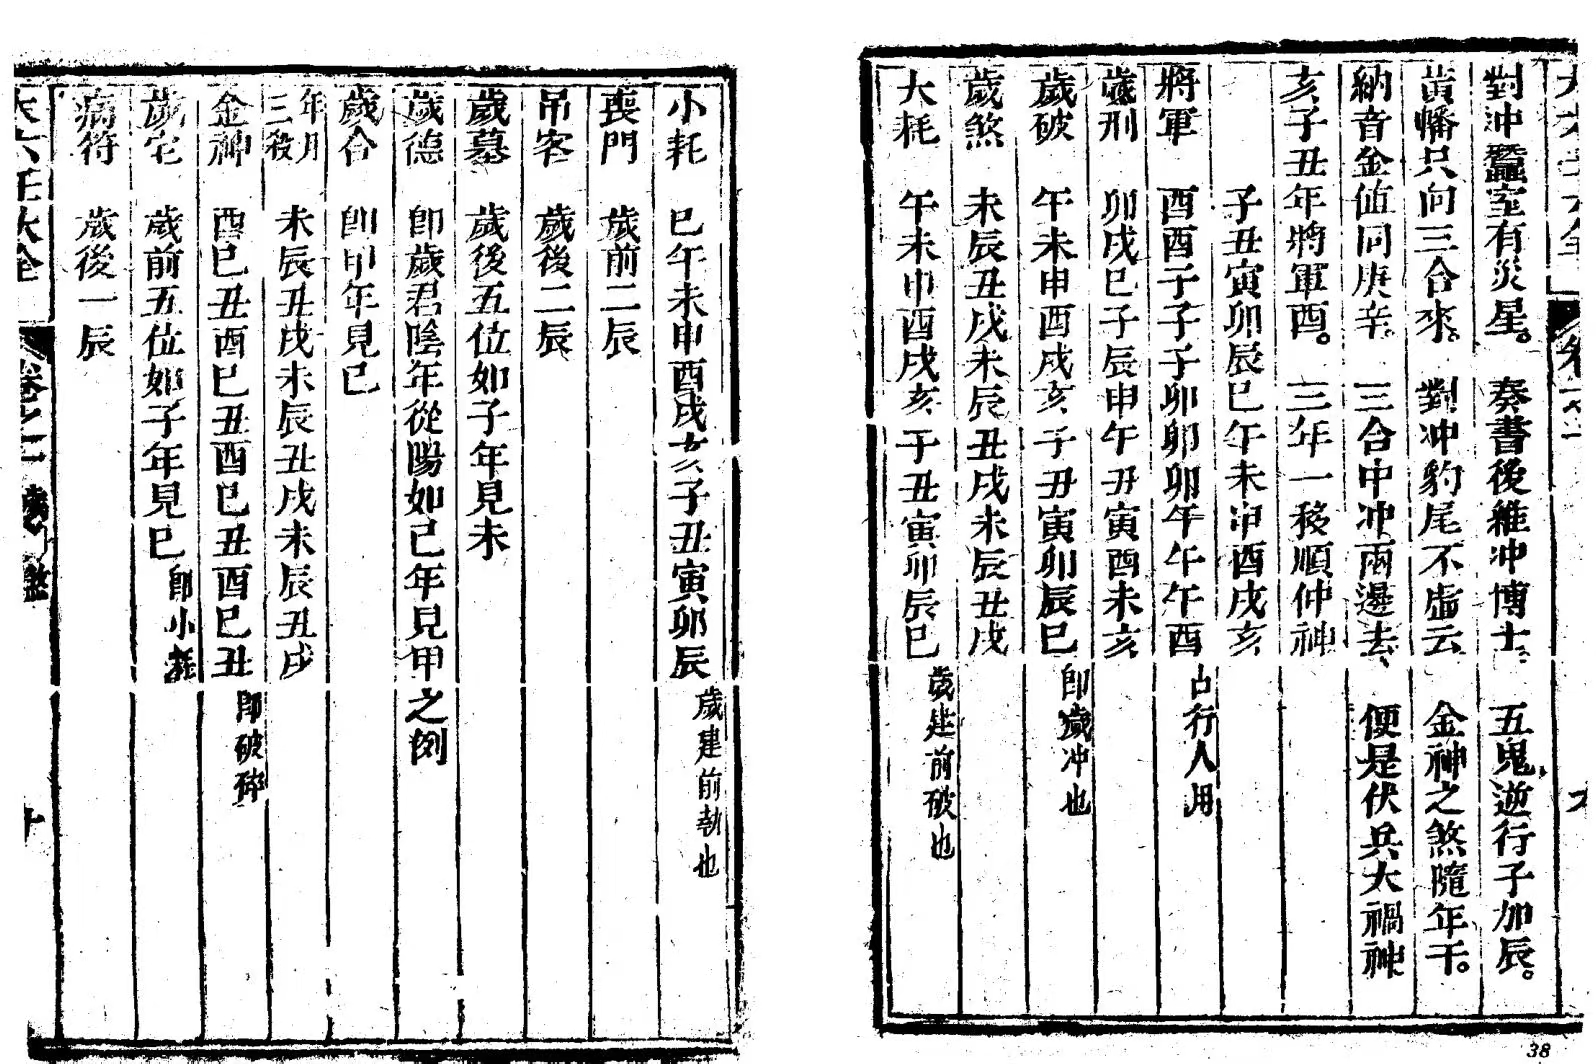 對沖蠶室有災星。　奏書後維沖博士、　五鬼逆行子加辰。
黃幡只向三合來。　對沖豹尾不虛云、　金神之煞隨年干。
納音金值同庚辛。　三合中沖兩邊去、　便是伏兵大禍神
亥子丑年將軍酉。　三年一移順仲神
子丑寅卯辰巳午未申酉戌亥
將軍　酉酉子子子卯卯卯午午午酉　占行人用
歲刑　卯戌巳子辰申午丑寅酉未亥
歲破　午未申酉戌亥子丑寅卯辰巳　即歲沖也
歲煞　未辰丑戌未辰丑戌未辰丑戌
大耗　午未申酉戌亥子丑寅卯辰巳　歲建前破也
小耗　巳午未申酉戌亥子丑寅卯辰　歲建前執也
喪門　歲前二辰
吊客　歲後二辰
歲墓　歲後五位如子年見未
歲德　即歲君陰年從陽如己年見甲之例
歲合　即甲年見己
年月三殺　未辰丑戌未辰丑戌未辰丑戌
金神　酉巳丑酉巳丑酉巳丑酉巳丑　即破碎
歲宅　歲前五位如子年見巳　即小耗
病符　歲後一辰
大六壬大全　卷之一　歲煞　十
38